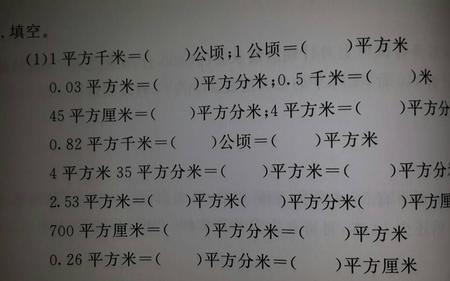 .填空。
(1)1平方千米=(  )公顷;1公顷=(  )平方米
0.03平方米=(  )平方分米;0.5千米=(  )米
45平方厘米=(  )平方分米;4平方米=(  )平方分
0.82平方千米=(  )公顷=(  )平方米
4平方米35平方分米=(  )平方米=(  )平方分
2.53平方米=(  )平方米(  )平方分米(  )平方厘
700平方厘米=(  )平方分米=(  )平方米
0.26平方米=(  )平方分米=(  )平方厘米